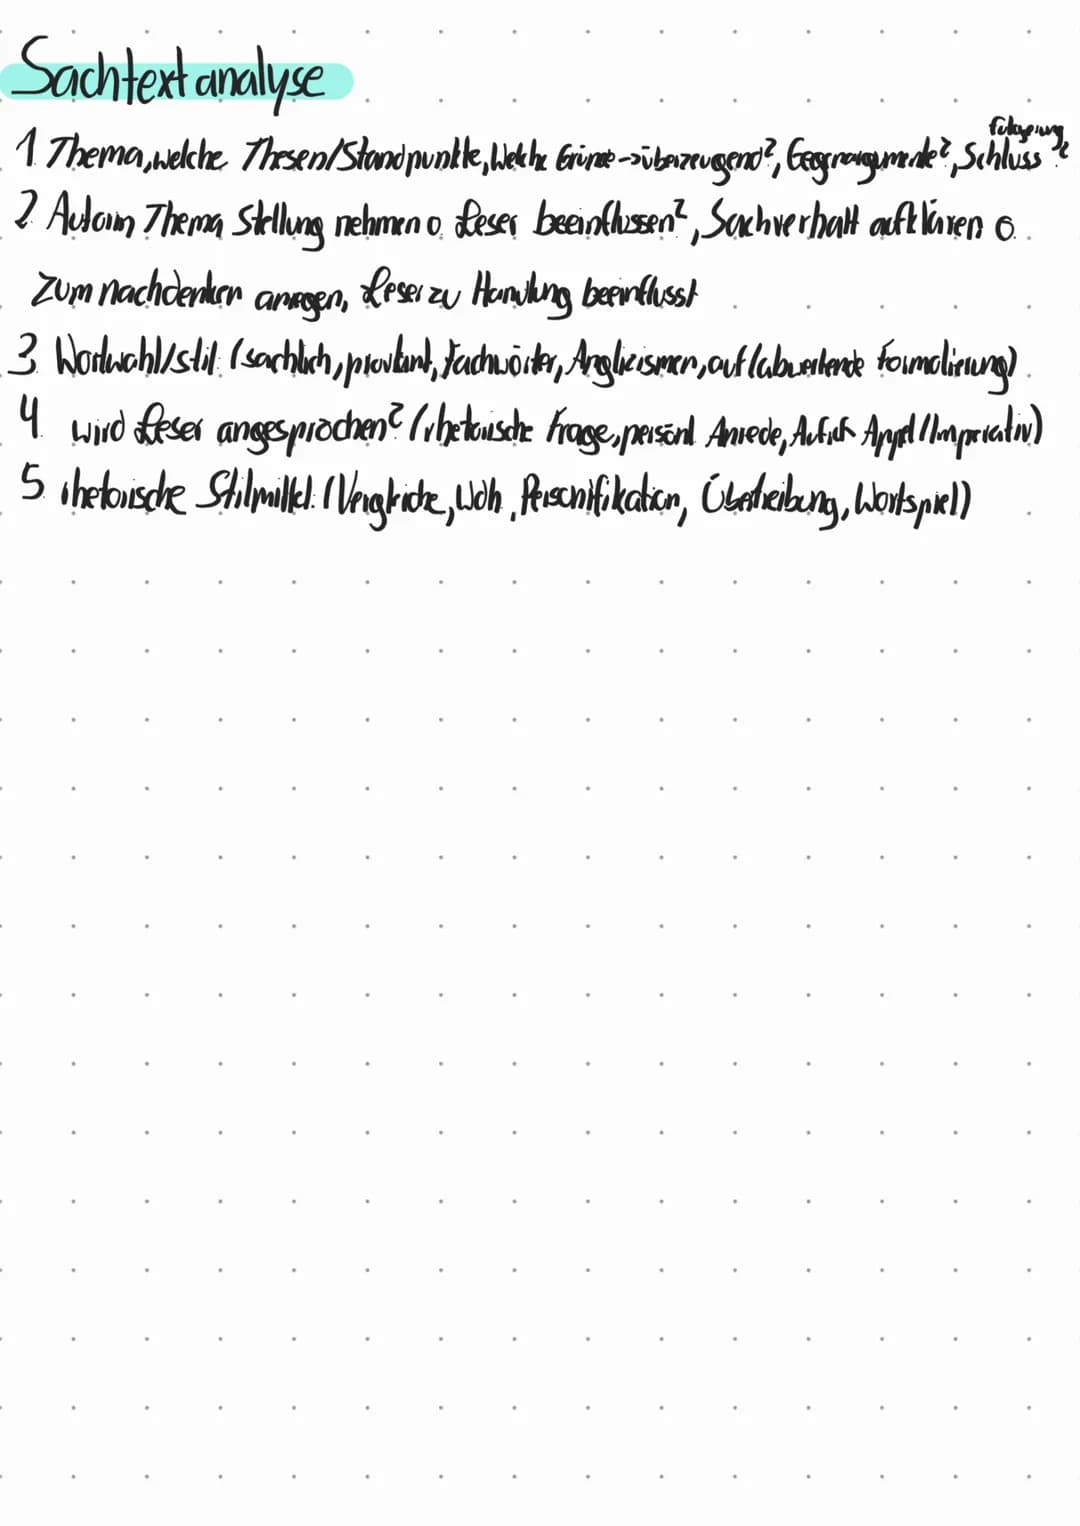 Sachtextanalyse
1. Thema, welche Thesen/Standpunkte, Welche Gründe -> überzeugend?, Gegenargumente?, Schlussfolgerung?
2. Autorin Thema Stellung nehmen o. Leser beeinflussen?, Sachverhalt aufklären o.
zum nachdenken anregen, Leser zu Handlung beeinflusst
3. Wortwahl/stil: (sachlich, provokant, Fachwörter, Anglizismen, auf/abwertende Formulierung)
4. wird Leser angesprochen? (rhetorische Frage, persönl. Anrede, Aufruf Appell/Imperativ)
5. rhetorische Stilmittel: (Vergleiche, Wdh., Personifikation, Übertreibung, Wortspiel)